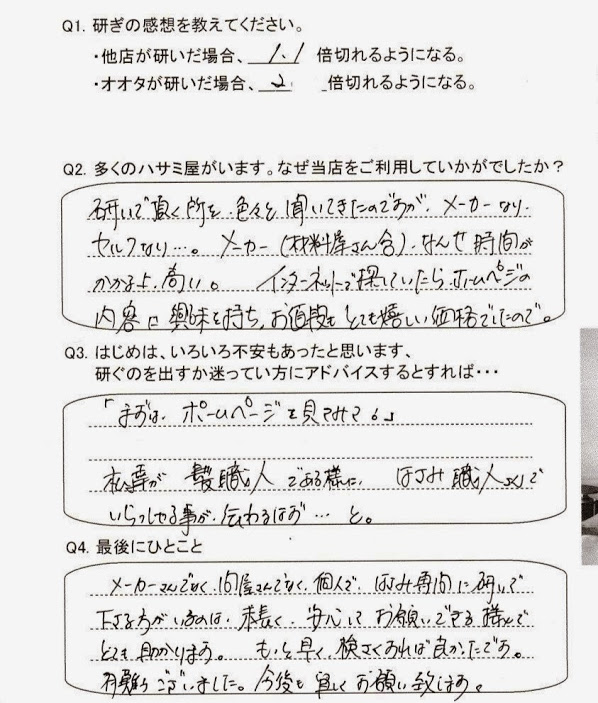 Q1. 研ぎの感想を教えてください。
・他店が研いだ場合、 1.1 倍切れるようになる。
・オオタが研いだ場合、 2 倍切れるようになる。
Q2. 多くのハサミ屋がいます。なぜ当店をご利用していかがでしたか？
研いで頂く所を、色々と聞いてきたのですが、メーカーなり、
セルフなり…。メーカー(材料屋さん含)、なんせ時間が
かかるよ、高い。 インターネットで探していたら、ホームページの
内容に興味を持ち、お値段もとても嬉しい価格でしたので。
Q3. はじめは、いろいろ不安もあったと思います、
研ぐのを出すか迷ってい方にアドバイスするとすれば・・・
「まずは、ホームページを見てみて。」
が 髪職人 である様に、 はさみ職人さんで
いらっしゃる事が、伝わるはず… と。
Q4. 最後にひとこと
メーカーさんでなく、問屋さんでなく、個人で、はさみ専門に研いで
下さる方がいるのは、 安心してお願いできる様で
とても助かります。 もっと早く、検さくすれば良かったです。
有難うございました。今後も宜しくお願い致します。